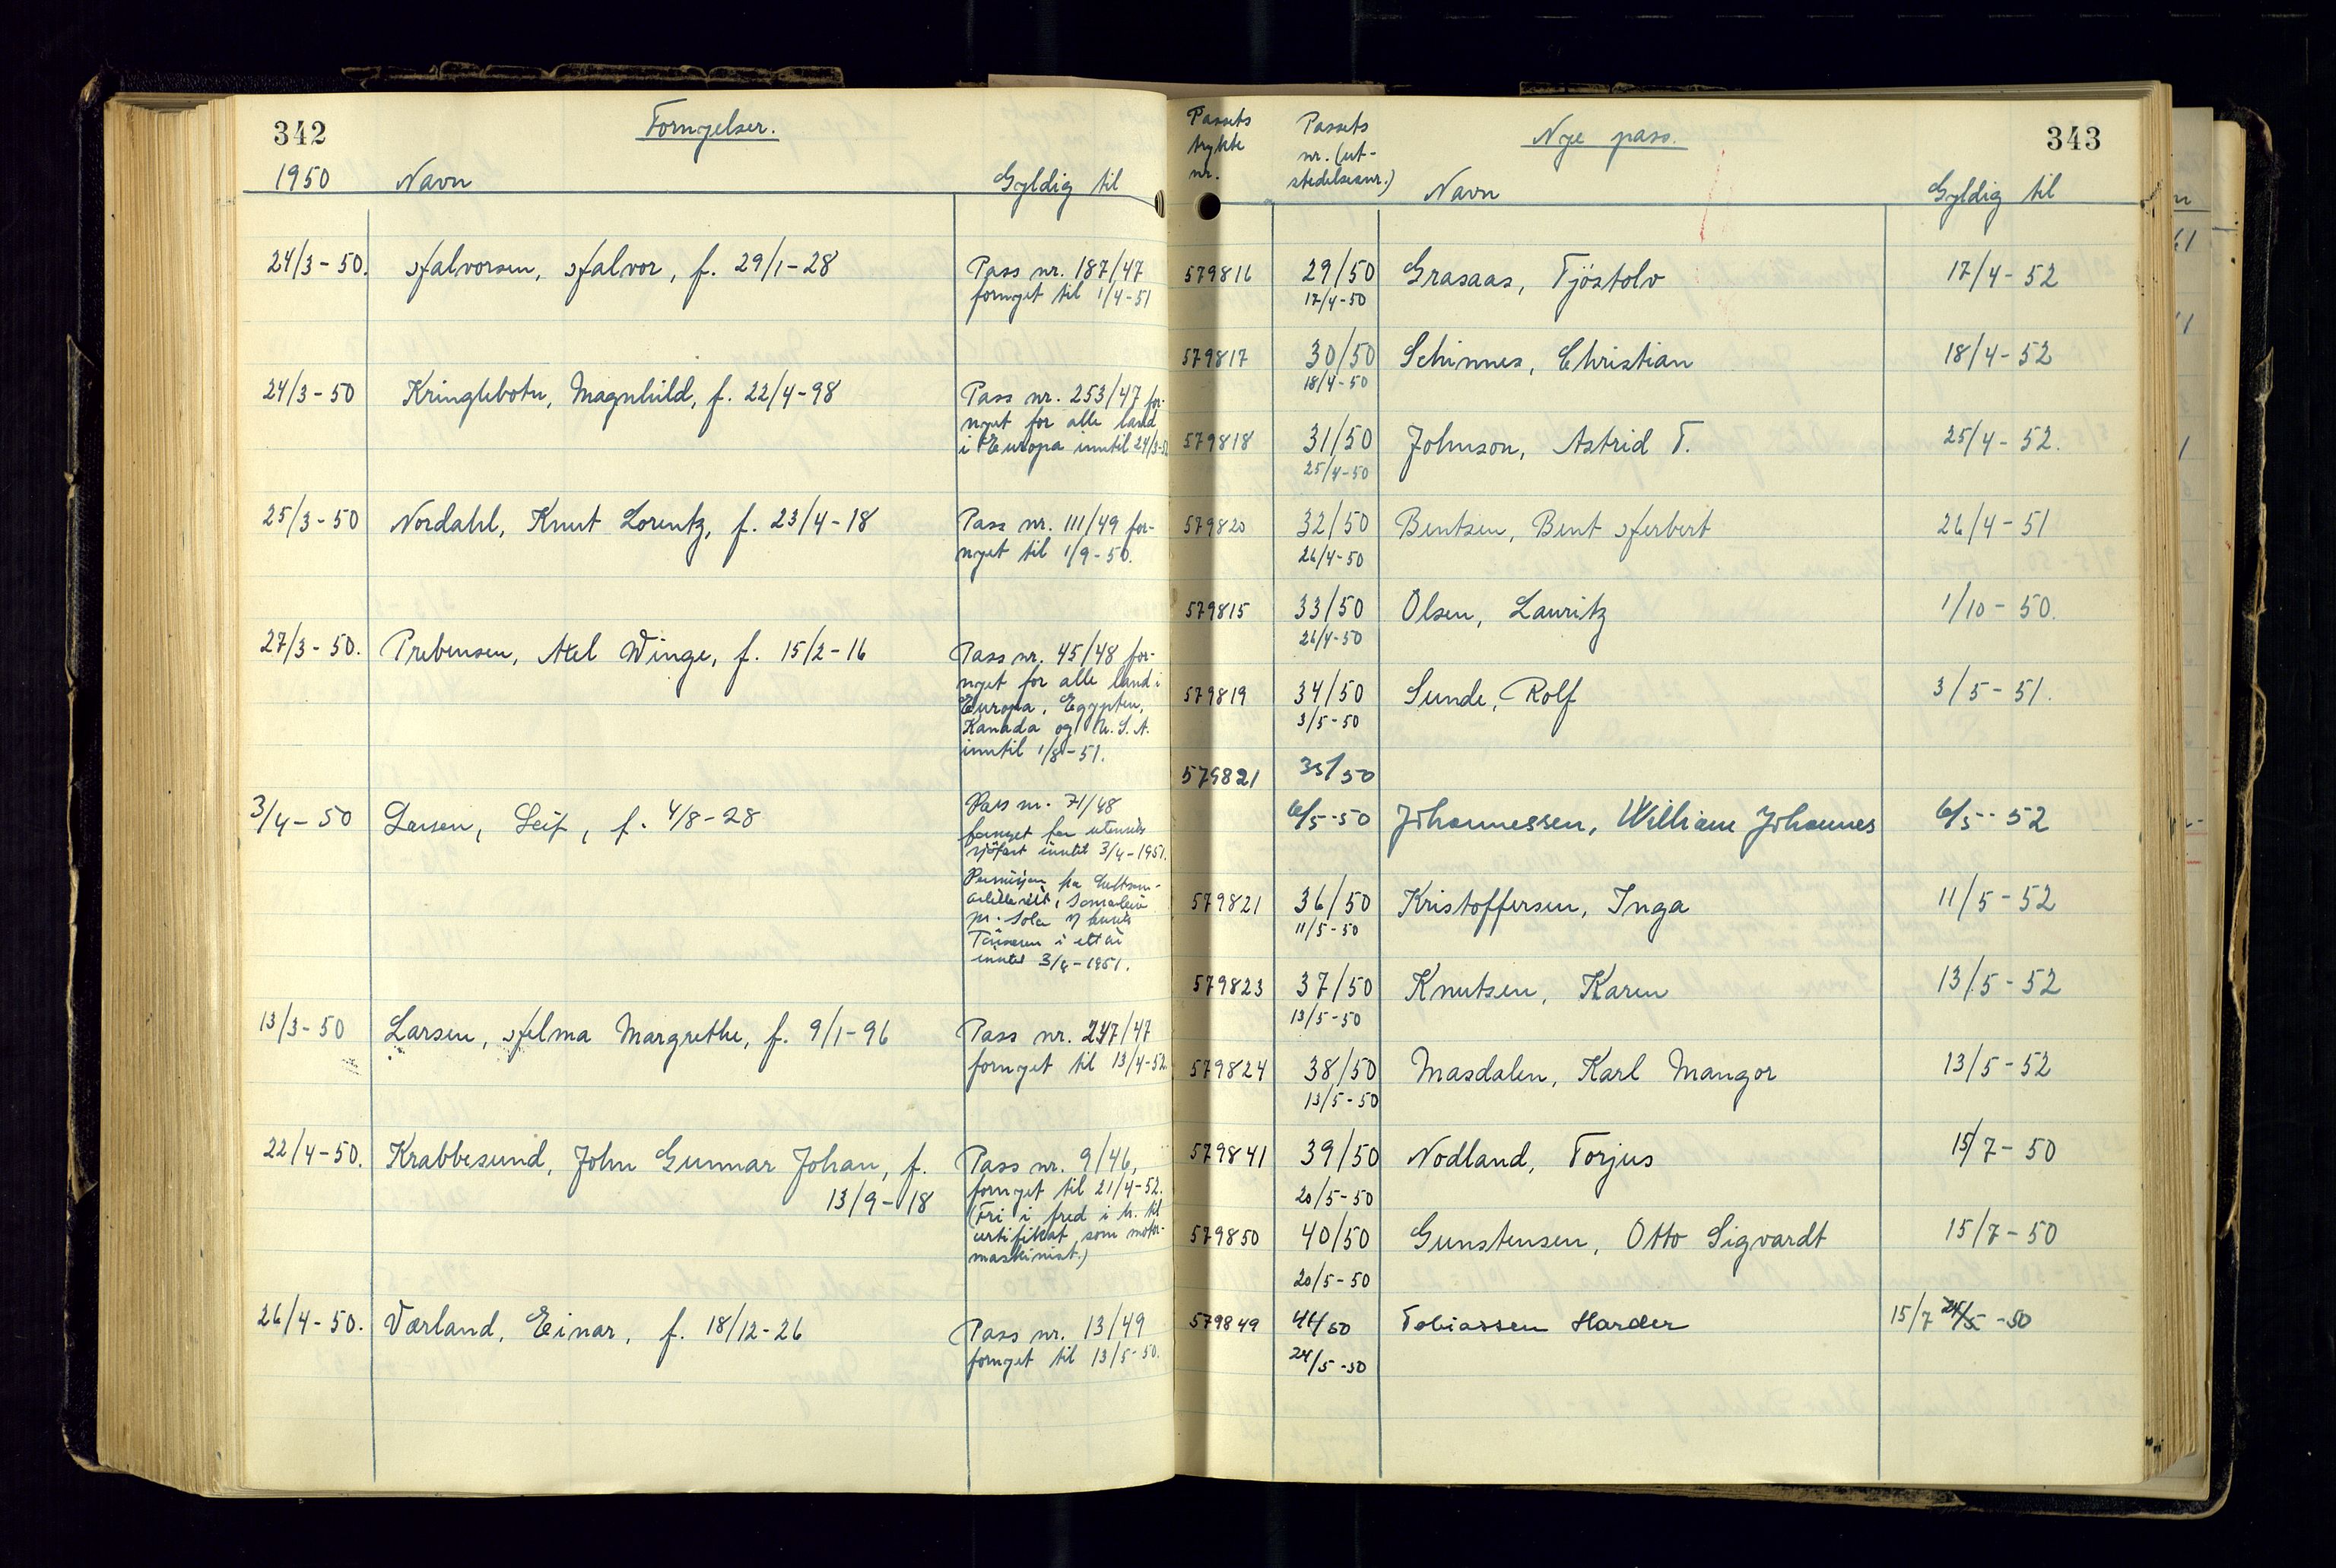 342
Fornyelser.
1950 Navn Gyldig til
24/3-50. Halvorsen, Halvor, f. 29/1-28 Pass nr. 187/47
fornyet til 1/4-51
24/3-50 Kringlebotn, Magnhild, f. 22/4-98 Pass nr. 253/47 for-
nyet for alle land
i Europa inntil 24/3-52
25/3-50 Nordahl, Knut Lorentz, f. 23/4-18 Pass nr. 111/49 for-
nyet til 1/9-50.
27/3-50. Prebensen, Axel Winge, f. 15/2-16 Pass nr. 45/48 for-
nyet for alle land i
Europa, Egypten,
Kanada og U.S.A.
inntil 1/8-51.
3/4-50 Larsen, Leif, f. 4/8-28 Pass nr. 71/48
fornyet for utenriks
sjöfart inntil 3/4-1951.
Permisjon fra
pr. Sola
i ett år
inntil 3/4-1951.
13/3-50 Larsen, Helma Margrethe, f. 9/1-96 Pass nr. 247/47
fornyet til 13/4-52
22/4-50. Krabbesund, John Gunnar Johan, f. Pass nr. 9/46,
13/9-18 fornyet til 21/4-52.
(Fri i fred i h. til
certifikat som motor-
maskinist.)
26/4-50. Værland, Einar, f. 18/12-26 Pass nr. 13/49
fornyet til 13/5-50.
343
Nye pass.
Passets
trykte
nr.
Passets
nr. (ut-
stedelsesnr.)
Navn Gyldig til
579816 29/50 Grasaas, Tjöstolv 17/4-52
17/4-50
579817 30/50 Schinnes, Christian 18/4-52
18/4-50
579818 31/50 Johnson, Astrid T. 25/4-52.
25/4-50
579820 32/50 Bentsen, Bent Herbert 26/4-51
26/4-50
579815 33/50 Olsen, Lauritz 1/10-50.
26/4-50
579819 34/50 Sunde, Rolf 3/5-51.
3/5-50
579821 35/50
6/5-50 Johannessen, William Johannes 6/5-52
579821 36/50 Kristoffersen, Inga 11/5-52
11/5-50
579823 37/50 Knutsen, Karen 13/5-52
13/5-50
579824 38/50 Masdalen, Karl Mangor 13/5-52
13/5-50
579841 39/50 Nodland, Torjus 15/7-50
20/5-50
579850 40/50 Gunstensen, Otto Sigvardt 15/7-50
20/5-50
579849 41/50 Tobiassen Harder 15/7 24/5-50
24/5-50